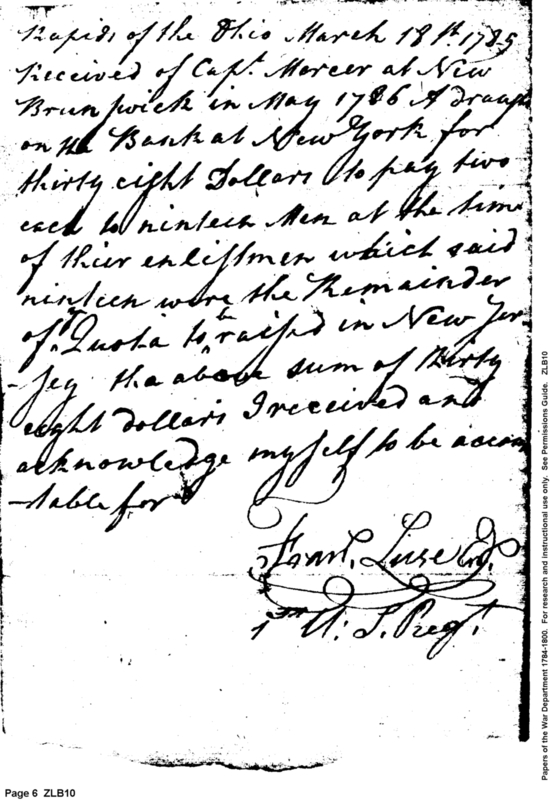 Rapids of the Ohio March 18th. 1785
Received of Capt. Mercer at New
Brunswick in May 1786 A draugh
on the Bank at New York for
thirty eight Dollars to pay two
each to ninteen Men at the time
of their enlistmen which said
ninteen were the Remainder
of ye. Quota to be raised in New Jer-
-sey the above sum of thirty
eight dollars I received and
acknowledge myself to be accoun
-table for
Luse Esqr.
U: S. Regt.
Page 6 ZLB10
Papers of the War Department 1784-1800. For research and instructional use only. See Permissions Guide. ZLB10